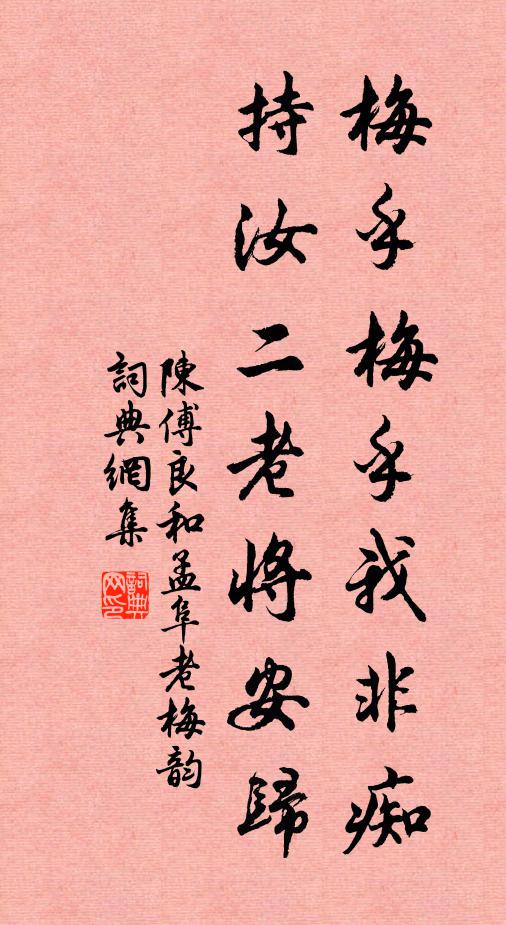 梅乎梅乎我非痴
持汝二老將安歸
陳傅良和孟阜老梅韻
詞典網集
詞典網印